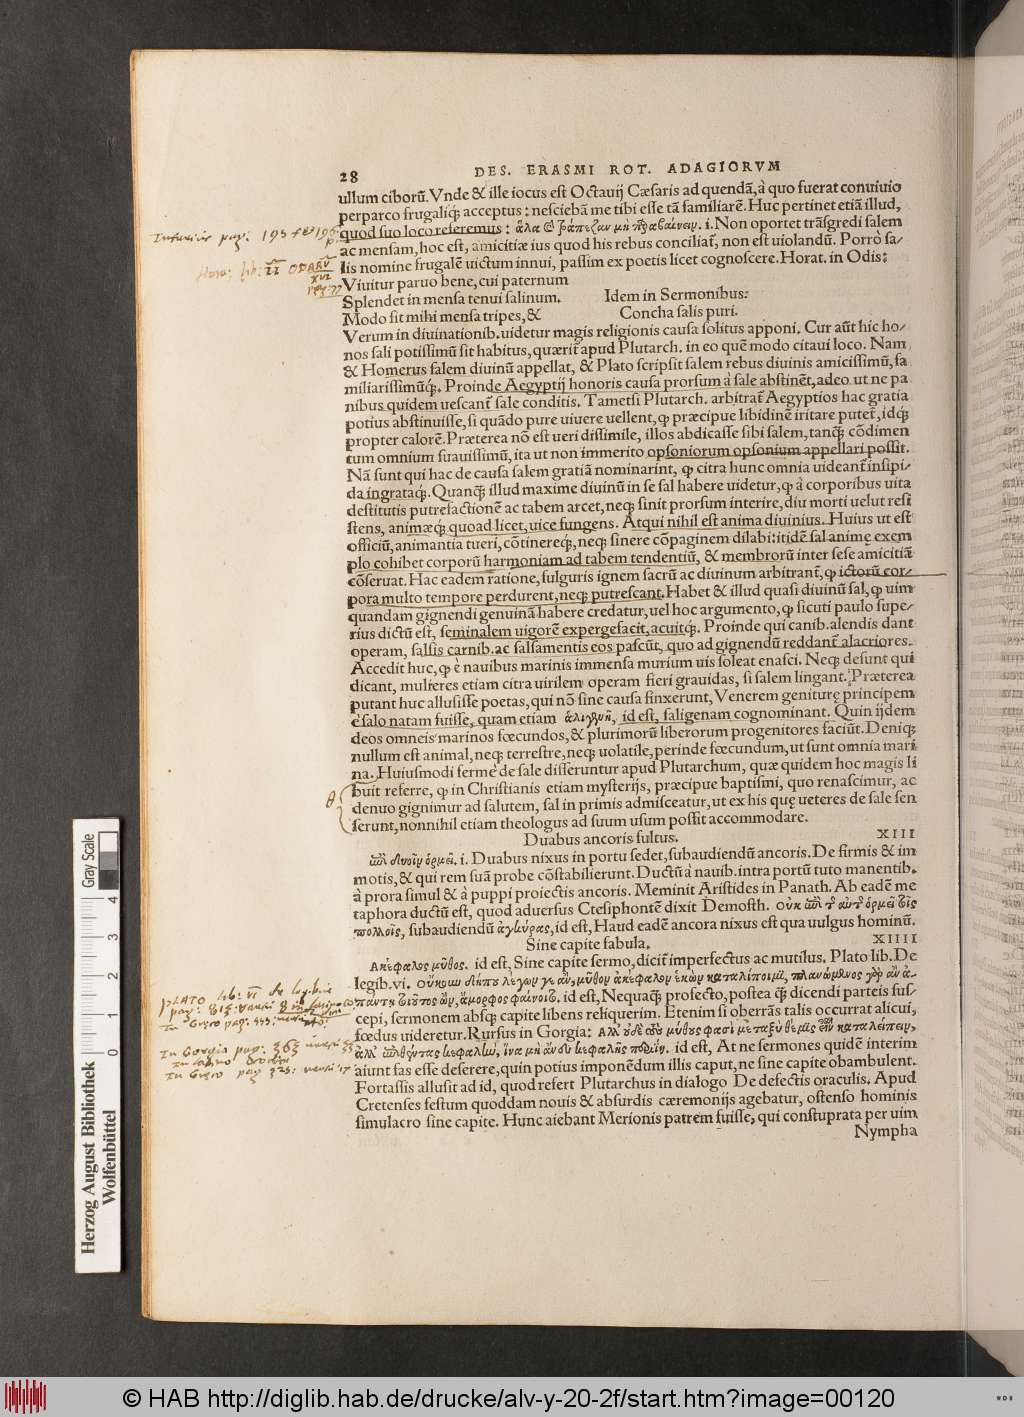 28 DES. ERASMI ROT. ADAGIORVM
ullum ciborũ. Vnde & ille iocus est Octauij Cæsaris ad quendã, à quo fuerat conuiuio
perparco frugaliq; acceptus: nesciebã me tibi esse tã familiarẽ. Huc pertinet etiã illud,
quod suo loco referemus: ἅλα καὶ τράπεζαν μὴ παραβαίνειν. i. Non oportet trãsgredi salem
ac mensam, hoc est, amicitiæ ius quod his rebus conciliat, non est uiolandũ. Porrò sa-
lis nomine frugalẽ uictum innui, passim ex poetis licet cognoscere. Horat. in Odis:
Viuitur paruo bene, cui paternum
Splendet in mensa tenui salinum. Idem in Sermonibus:
Modo sit mihi mensa tripes, & Concha salis puri.
Verum in diuinationib. uidetur magis religionis causa solitus apponi. Cur aũt hic ho-
nos sali potissimũ sit habitus, quærit apud Plutarch. in eo quẽ modo citaui loco. Nam
& Homerus salem diuinũ appellat, & Plato scripsit salem rebus diuinis amicissimũ, fa
miliarissimũq;. Proinde Aegyptij honoris causa prorsum à sale abstinẽt, adeo ut ne pa
nibus quidem uescant sale conditis. Tametsi Plutarch. arbitrat Aegyptios hac gratia
potius abstinuisse, si quãdo pure uiuere uellent, ꝙ præcipue libidinẽ iritare putet, idq;
propter calorẽ. Præterea nõ est ueri dissimile, illos abdicasse sibi salem, tanq; cõdimen
tum omnium suauissimũ, ita ut non immerito opsoniorum opsonium appellari possit.
Nã sunt qui hac de causa salem gratiã nominarint, ꝙ citra hunc omnia uideant insipi-
da ingrataq;. Quanq; illud maxime diuinũ in se sal habere uidetur, ꝙ à corporibus uita
destitutis putrefactionẽ ac tabem arcet, neq; sinit prorsum interire, diu morti uelut resi
stens, animæq; quoad licet, uice fungens. Atqui nihil est anima diuinius. Huius ut est
officiũ, animantia tueri, cõtinereq;, neq; sinere cõpaginem dilabi: itidẽ sal animę exem
plo cohibet corporũ harmoniam ad tabem tendentiũ, & membrorũ inter sese amicitiã
cõseruat. Hac eadem ratione, fulguris ignem sacrũ ac diuinum arbitrant, ꝙ ictorũ cor-
pora multo tempore perdurent, neq; putrescant. Habet & illud quasi diuinũ sal, ꝙ uim
quandam gignendi genuinã habere credatur, uel hoc argumento, ꝙ sicuti paulo supe-
rius dictũ est, seminalem uigorẽ expergefacit, acuitq;. Proinde qui canib. alendis dant
operam, salsis carnib. ac salsamentis eos pascũt, quo ad gignendũ reddant alacriores.
Accedit huc, ꝙ è nauibus marinis immensa murium uis soleat enasci. Neq; desunt qui
dicant, mulieres etiam citra uirilem operam fieri grauidas, si salem lingant. Præterea
putant huc allusisse poetas, qui nõ sine causa finxerunt, Venerem geniturę principem
è salo natam fuisse, quam etiam ἁλιγενῆ, id est, saligenam cognominant. Quin ijdem
deos omneis marinos fœcundos, & plurimorũ liberorum progenitores faciũt. Deniq;
nullum est animal, neq; terrestre, neq; uolatile, perinde fœcundum, ut sunt omnia mari
na. Huiusmodi fermè de sale disseruntur apud Plutarchum, quæ quidem hoc magis li
buit referre, ꝙ in Christianis etiam mysterijs, præcipue baptismi, quo renascimur, ac
denuo gignimur ad salutem, sal in primis admisceatur, ut ex his quę ueteres de sale sen
serunt, nonnihil etiam theologus ad suum usum possit accommodare.
Duabus ancoris fultus. XIII
ἐπὶ δυοῖν ὁρμεῖ. i. Duabus nixus in portu sedet, subaudiendũ ancoris. De firmis & im
motis, & qui rem suã probe cõstabilierunt. Ductũ à nauib. intra portũ tuto manentib.
à prora simul & à puppi proiectis ancoris. Meminit Aristides in Panath. Ab eadẽ me
taphora ductũ est, quod aduersus Ctesiphontẽ dixit Demosth. οὐκ ἐπὶ τ αὐτ ὁρμεῖ τοῖς
πολλοῖς, subaudiendũ ἀγκύρας, id est, Haud eadẽ ancora nixus est qua uulgus hominũ.
Sine capite fabula. XIIII
Ἀκέφαλος μῦθος. id est, Sine capite sermo, dicit imperfectus ac mutilus. Plato lib. De
legib. vi. οὔκουν δήπου λέγων γε ἂν, μῦθον ἀκέφαλον ἑκὼν καταλίποιμι, πλανώμενος γὰρ ἂν ἁ-
πάντη τοιοῦτος ὢν, ἄμορφος φαίνοιτο. id est, Nequaq; profecto, postea q; dicendi parteis sus
cepi, sermonem absq; capite libens reliquerim. Etenim si oberrãs talis occurrat alicui,
fœdus uideretur. Rursus in Gorgia: Ἀλλ' οὐδὲ τοὺς μύθους φασὶ μεταξὺ θέμις εἶναι καταλείπειν,
ἀλλ' ἐπιθέντας κεφαλὴν, ἵνα μὴ ἄνευ κεφαλῆς περιίῃ. id est, At ne sermones quidẽ interim
aiunt fas esse deserere, quin potius imponẽdum illis caput, ne sine capite obambulent.
Fortassis allusit ad id, quod refert Plutarchus in dialogo De defectis oraculis. Apud
Cretenses festum quoddam nouis & absurdis cæremonijs agebatur, ostenso hominis
simulacro sine capite. Hunc aiebant Merionis patrem fuisse, qui constuprata per uim
Nympha
Inferius pag. 193
Hora: lib: II ODARŨ
XVI
θ
PLATO lib: VI de legibus
In Gorgia pag: 363
Herzog August Bibliothek
Wolfenbüttel
Gray Scale
0 1 2 3 4
© HAB http://diglib.hab.de/drucke/alv-y-20-2f/start.htm?image=00120